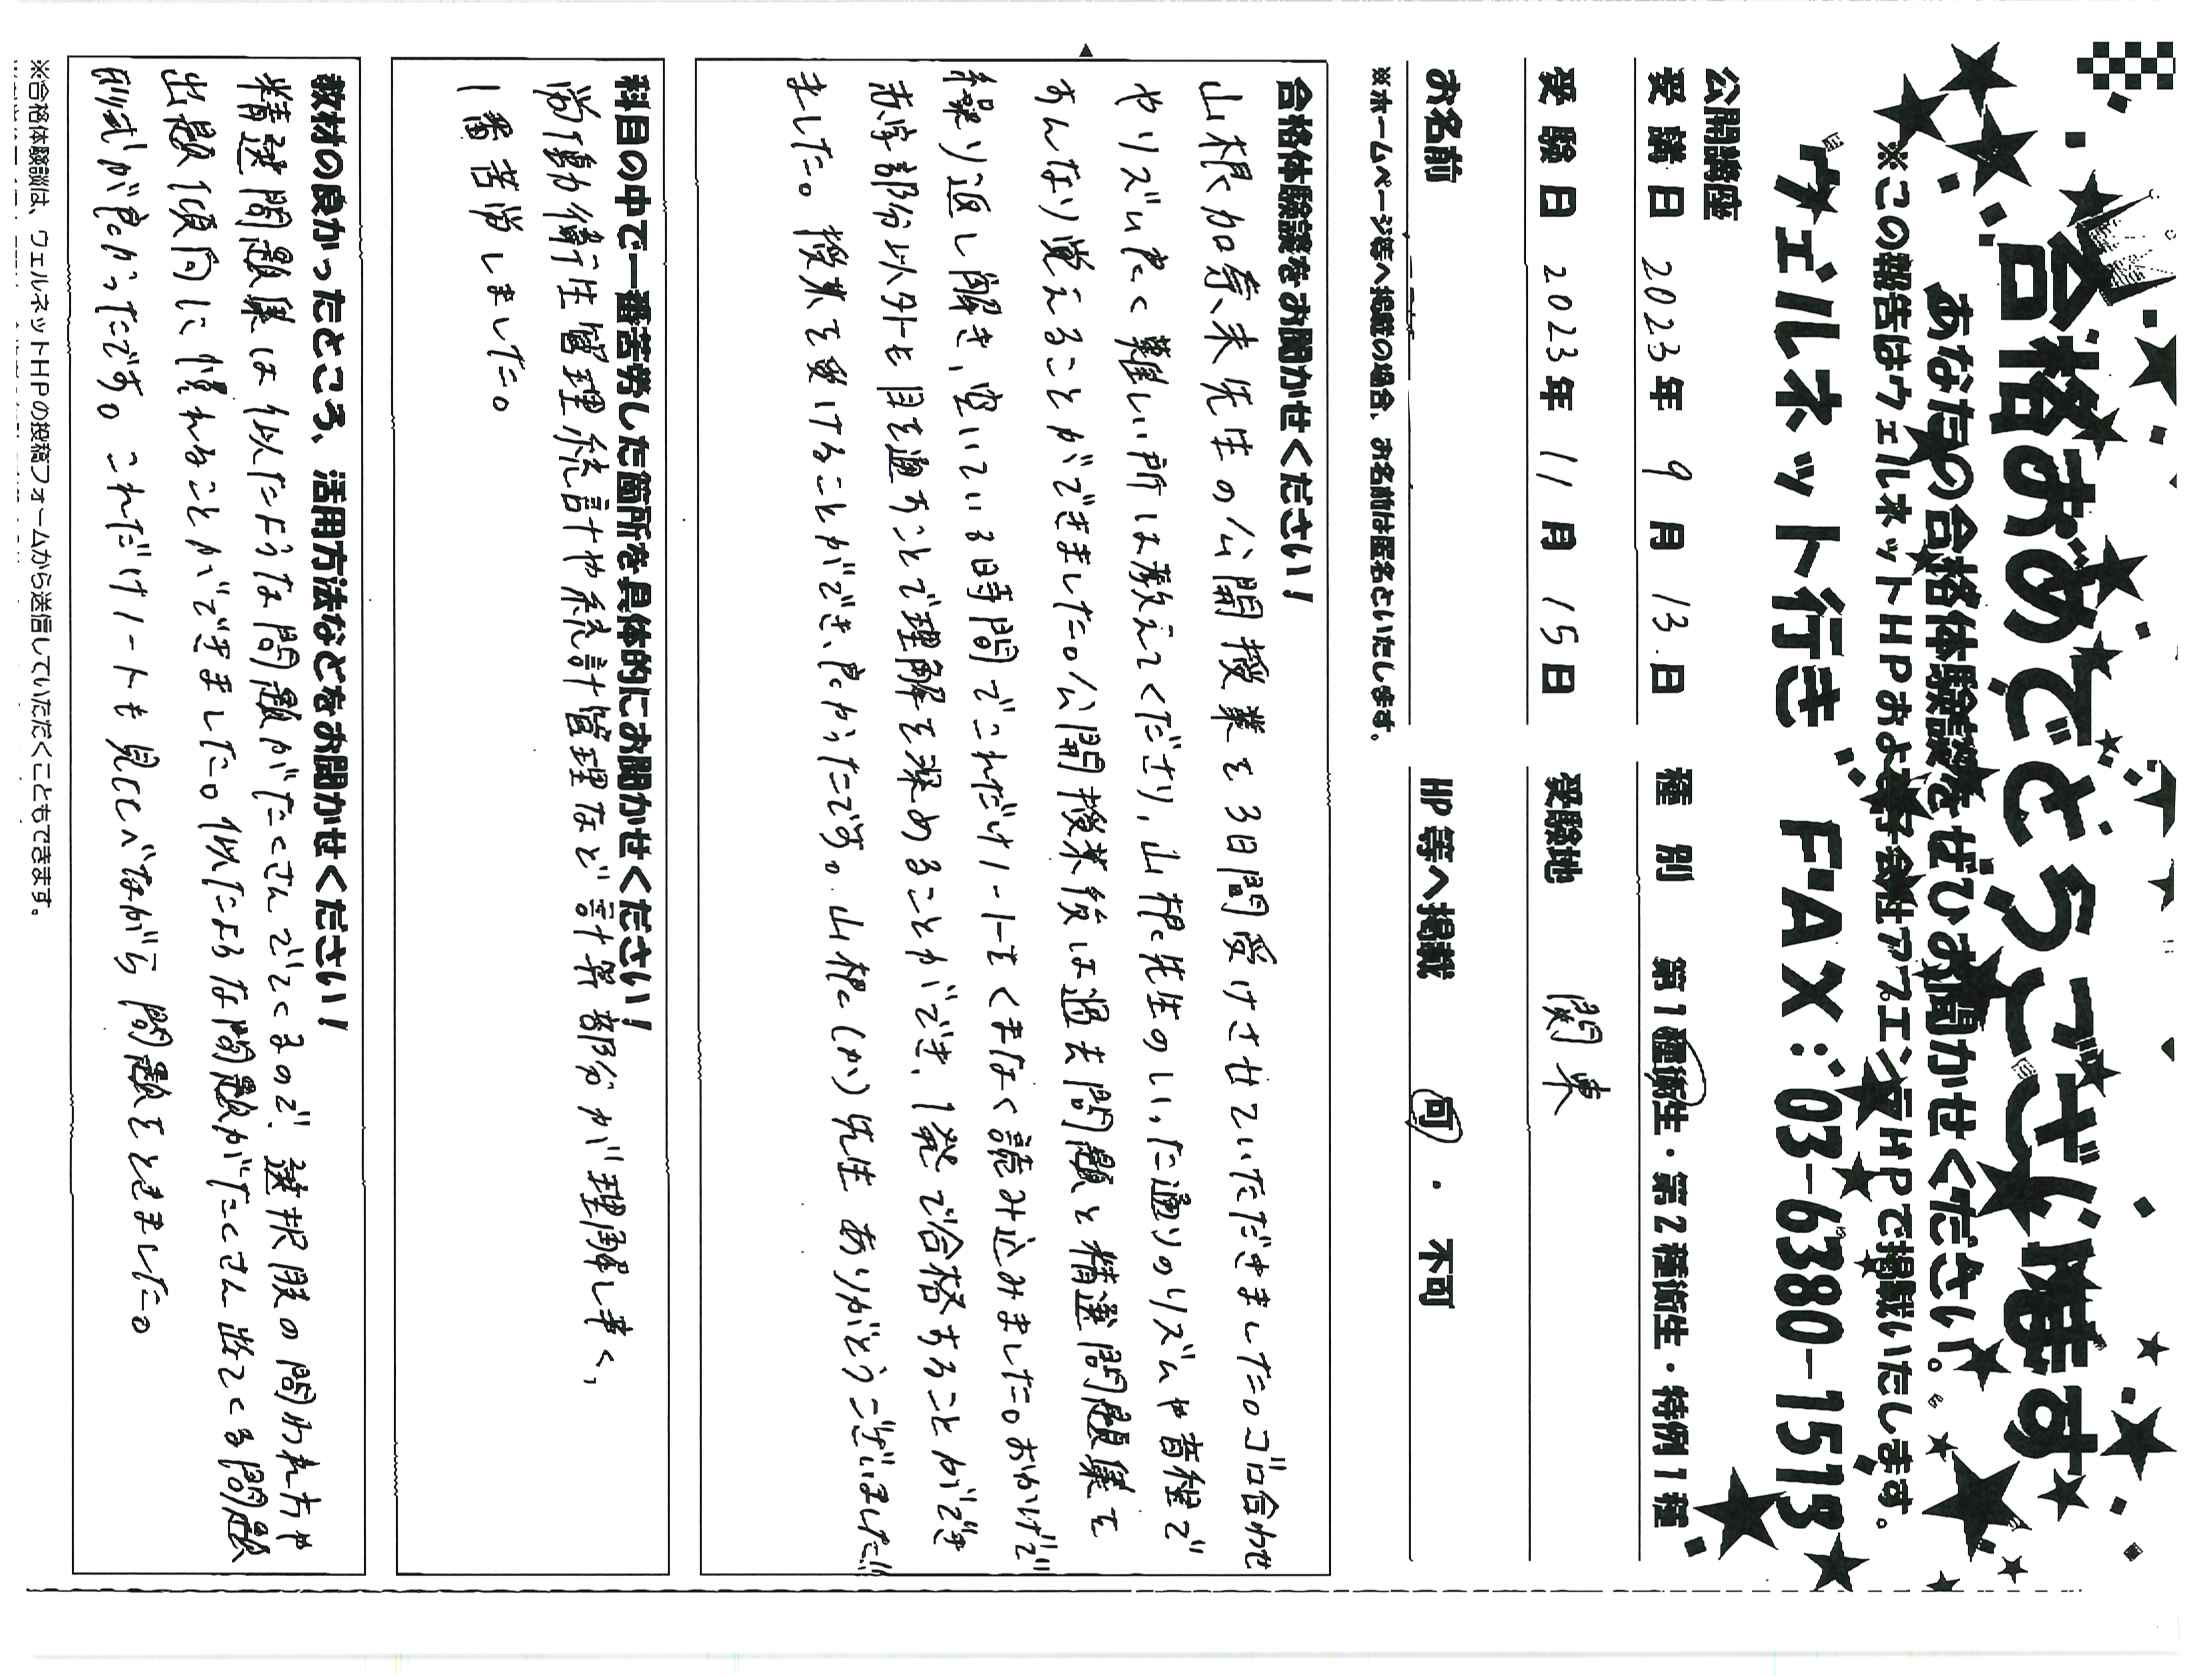 合格おめでとうございます
あなたの合格体験談をぜひお聞かせください。
※この報告はウェルネットHPおよび子会社アプエンテHPで掲載いたします。
ウェルネット行き FAX：03-6380-1513
公開講座
受講日 2023年 9月 13日 種別 第1種衛生・第2種衛生・特例1種
受験日 2023年 11月 15日 受験地 関東
お名前 HP等へ掲載 可 ・ 不可
※ホームページ等へ掲載の場合、お名前は匿名といたします。
合格体験談をお聞かせください！
山根加奈未先生の公開授業を3日間受けさせていただきました。ゴロ合わせ
やリズム良く難しい所は教えてくださり、山根先生のいった通りのリズムや音程で
すんなり覚えることができました。公開授業後は過去問題と精選問題集を
繰り返し解き、空いている時間でこれだけノートをくまなく読み込みました。おかげで
赤字部分以外も目を通すことで理解を深めることができ、1発で合格することができ
ました。授業を受けることができ、良かったです。山根(か)先生ありがとうございました!!
科目の中で一番苦労した箇所を具体的にお聞かせください！
労働衛生管理統計や統計管理など計算部分が理解し難く、
1番苦労しました。
教材の良かったところ、活用方法などをお聞かせください！
精選問題集は似たような問題がたくさんでてくるので、選択肢の問われ方や
出題傾向に慣れることができました。似たような問題がたくさん出てくる問題
形式が良かったです。これだけノートも見比べながら問題をときました。
※合格体験談は、ウェルネットHPの投稿フォームから送信していただくこともできます。